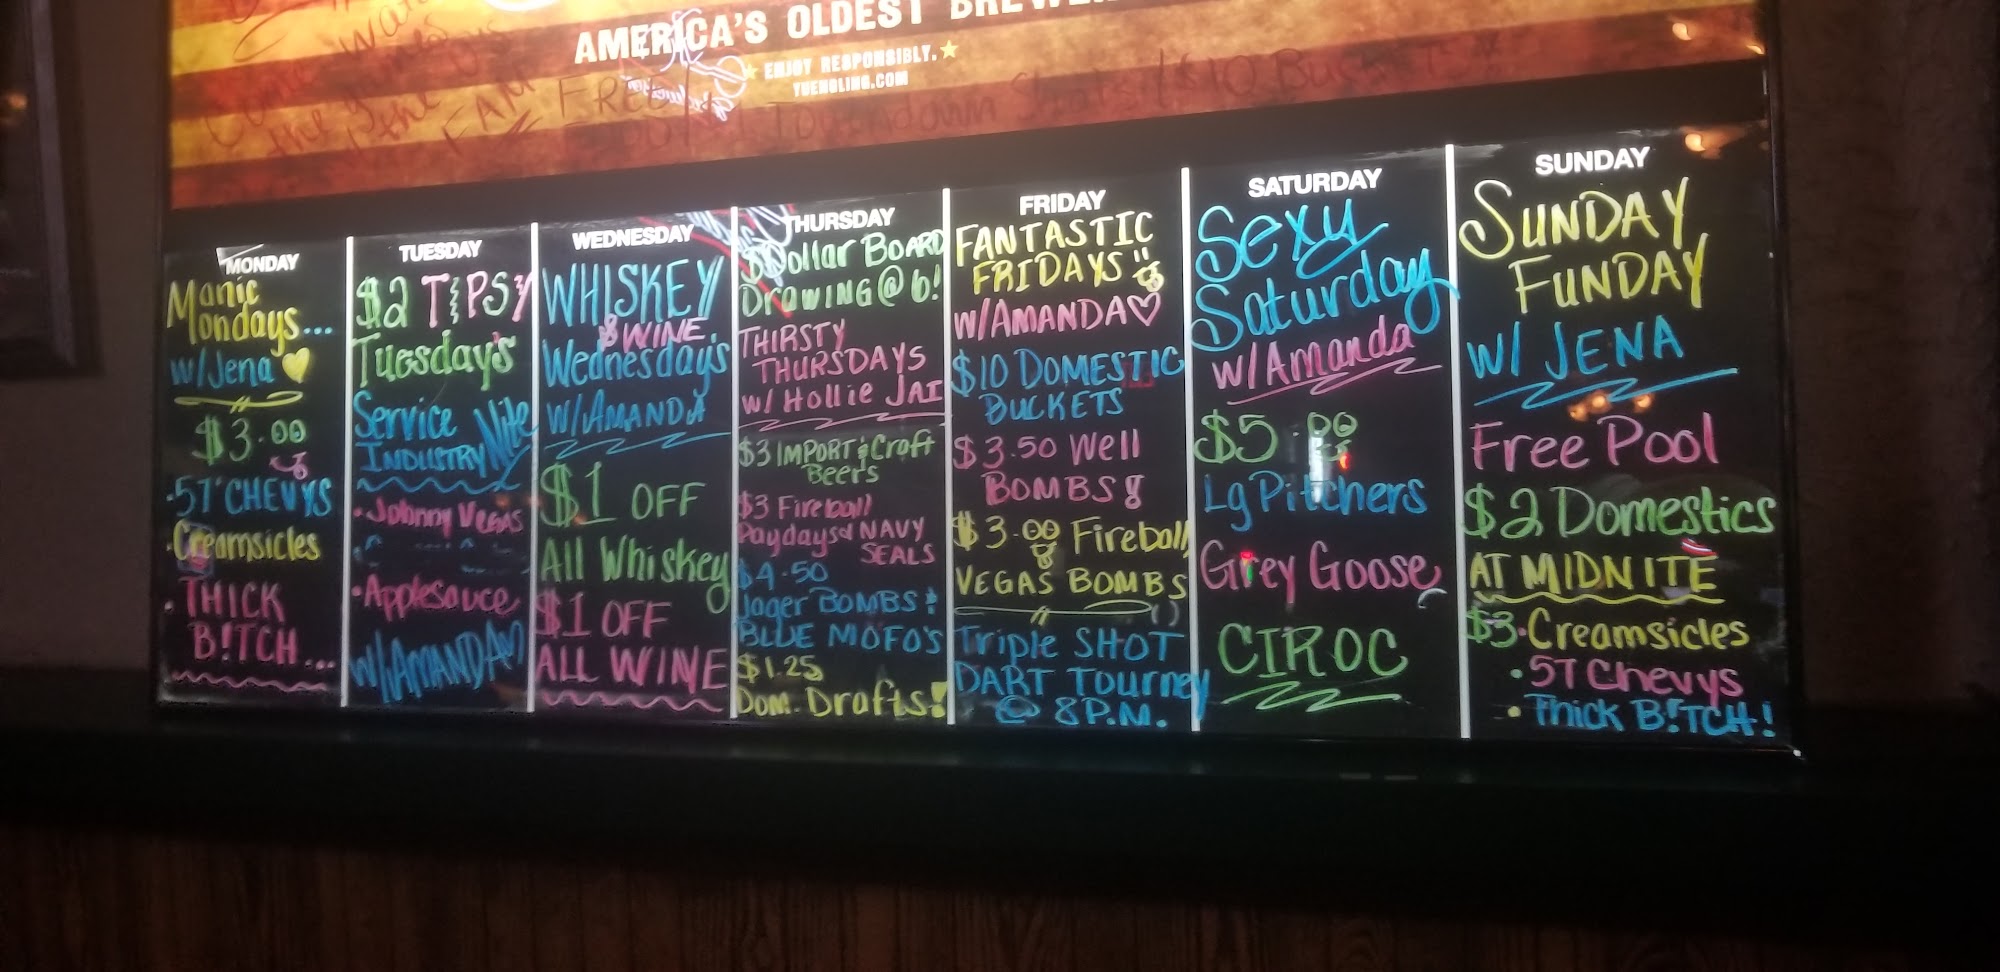 AMERICA'S OLDEST BREWER
ENJOY RESPONSIBLY.
YUENGLING.COM
FREE
Touchdown
MONDAY
Manic
Mondays...
w/Jena
$3.00
·57'CHEVYS
·Creamsicles
·THICK
B!TCH...
TUESDAY
$2 TiPSY
Tuesday's
Service
INDUSTRY Nite
·Johnny VEGAS
·Applesauce
W/AMANDA
WEDNESDAY
WHISKEY
& WINE
Wednesday's
W/AMANDA
$1 OFF
All Whiskey
$1 OFF
ALL WINE
THURSDAY
$Dollar BOARD
DrAWING @ 6!
THIRSTY
THURSDAYS
w/ Hollie JAI
$3 IMPORT & Craft
Beers
$3 Fireball
Paydays & NAVY
SEALS
$4.50
Jager BOMBS &
BLUE MOFO'S
$1.25
Dom. Drafts!
FRIDAY
FANTASTIC
FRIDAYS!!
W/AMANDA
$10 DOMESTIC
BUCKETS
$3.50 Well
BOMBS!
$3.00 Fireball
VEGAS BOMBS
Triple SHOT
DART Tourney
@ 8P.M.
SATURDAY
Sexy
Saturday
w/Amanda
$5.00
Lg Pitchers
Grey Goose
CIROC
SUNDAY
SUNDAY
FUNDAY
W/ JENA
Free Pool
$2 Domestics
AT MIDNITE
$3·Creamsicles
·57 Chevys
·Thick B!TCH!